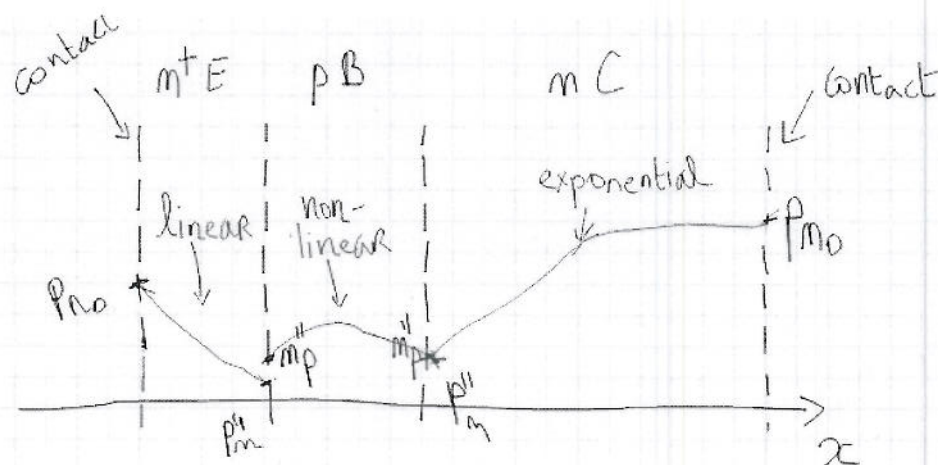 contact
n⁺E
pB
nC
contact
linear
non-
linear
exponential
Pno
Pno
n"p
n"p
p"n
p"n
x